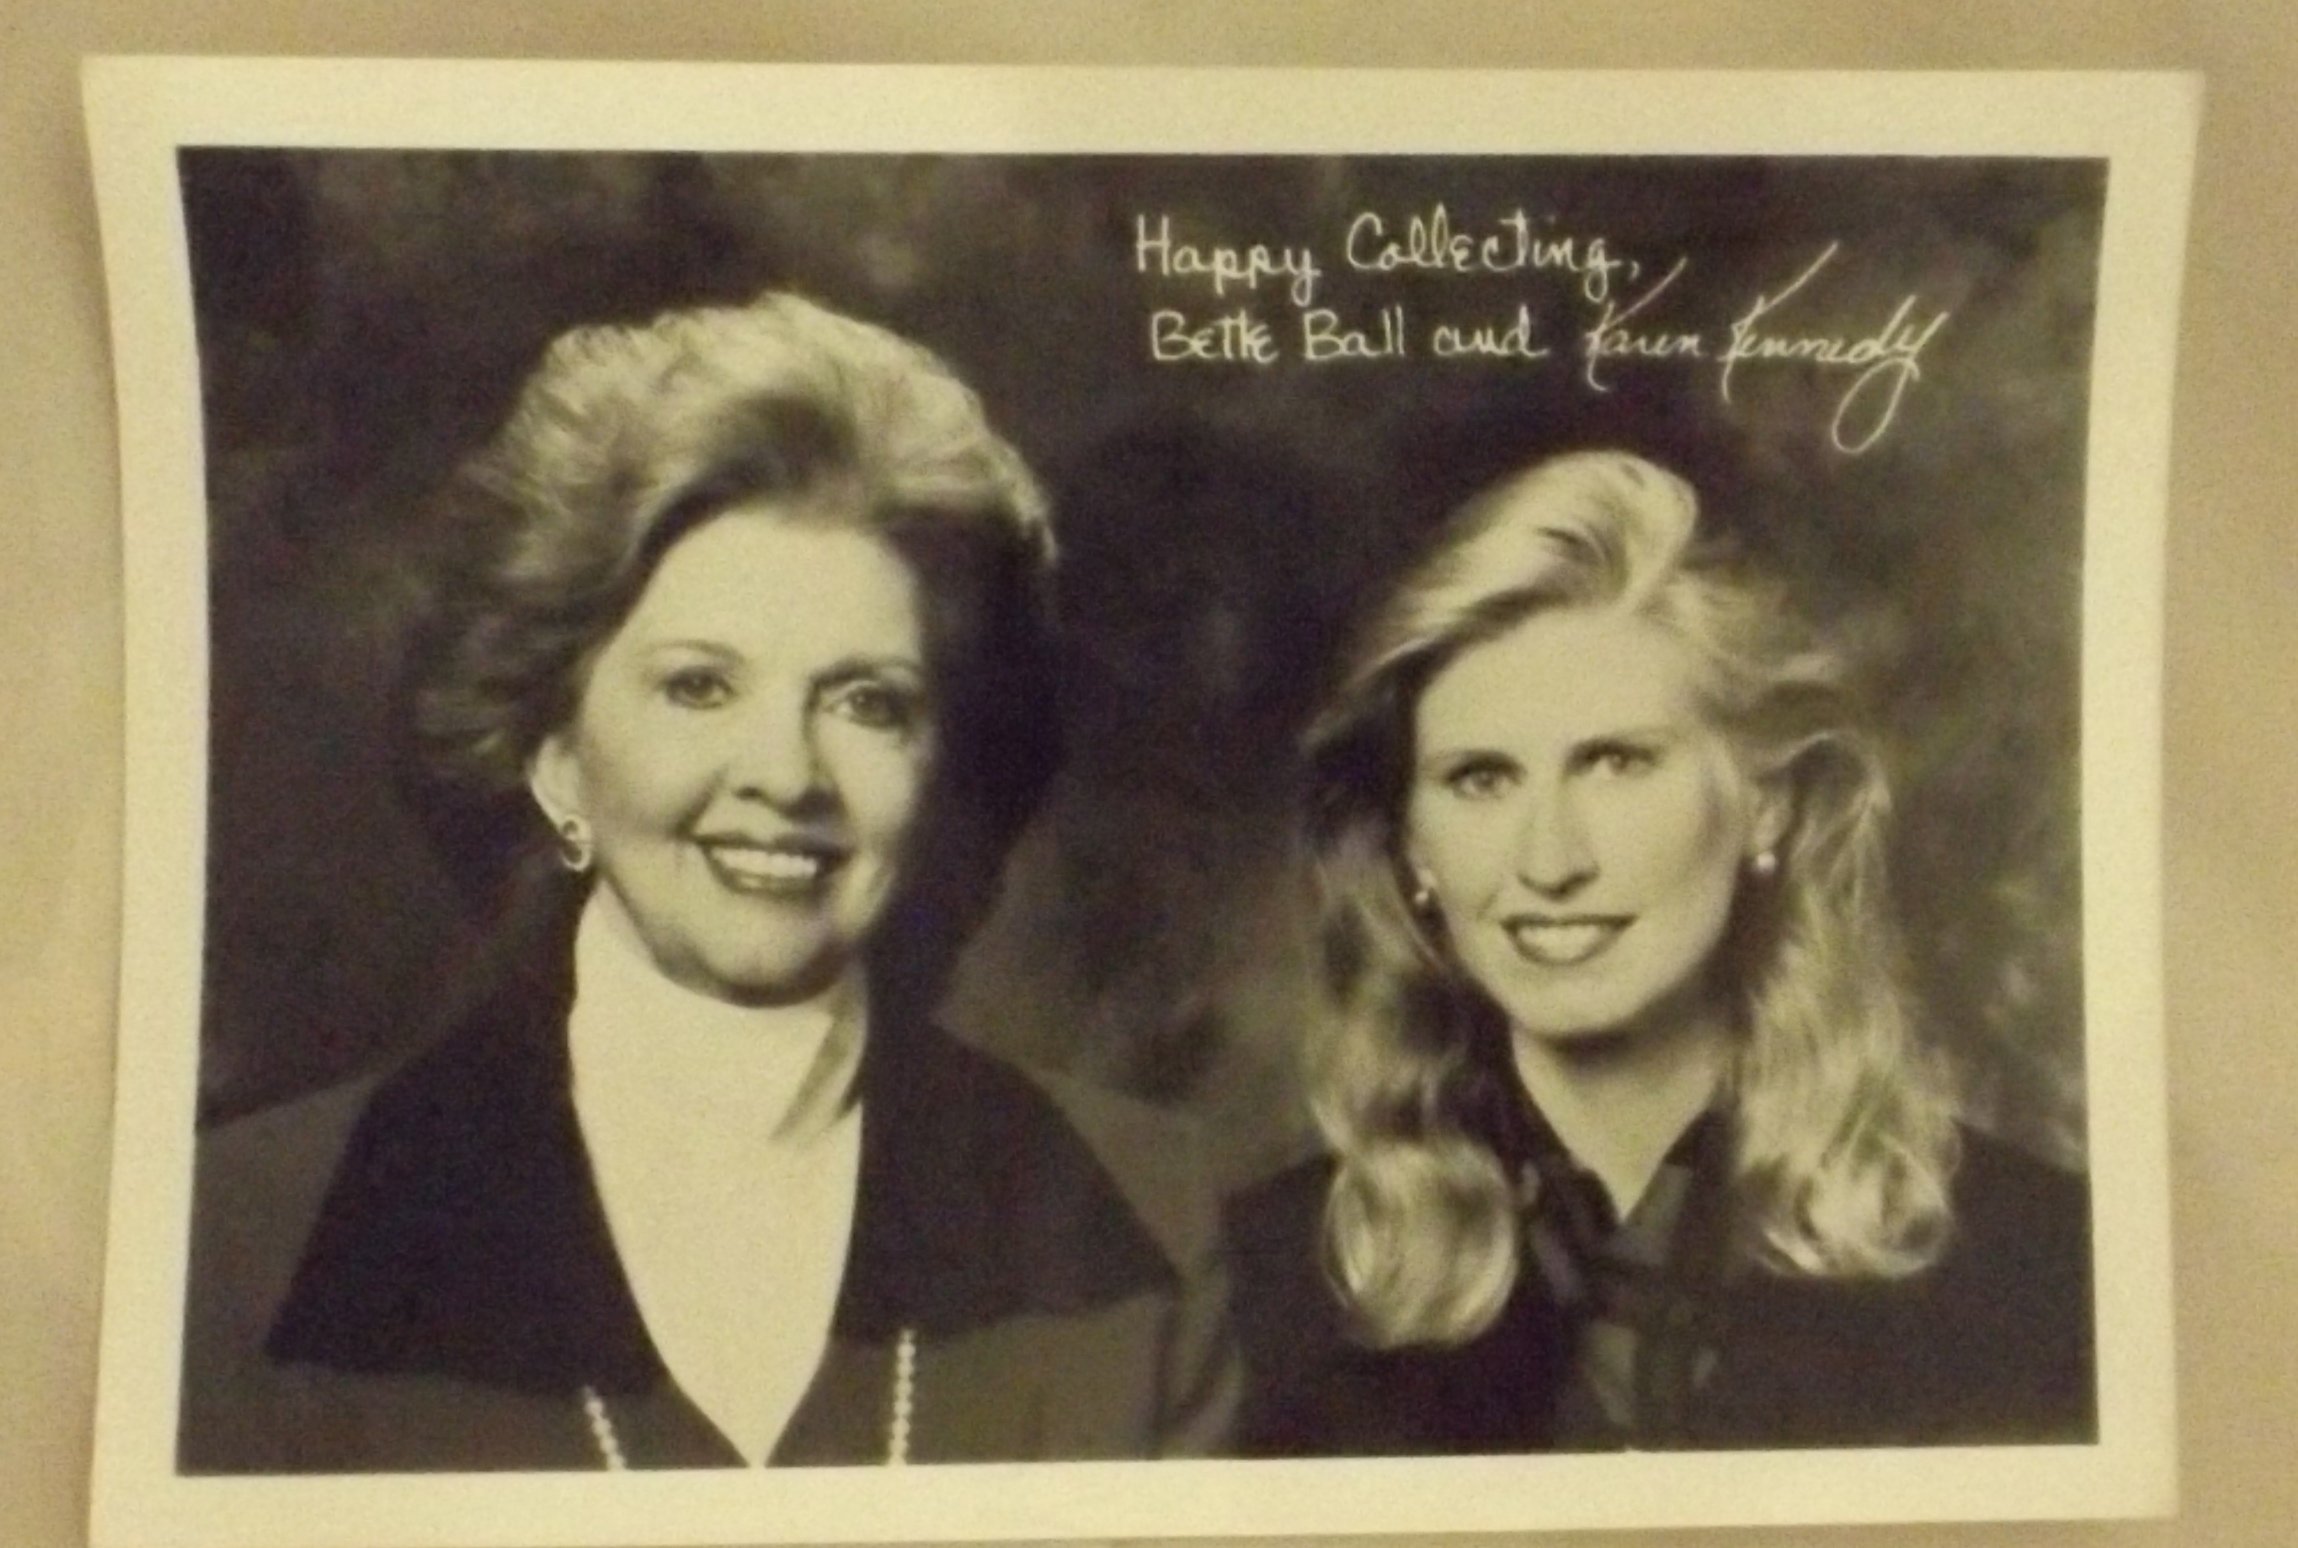 Happy Collecting,
Bette Ball and Karen Kennedy